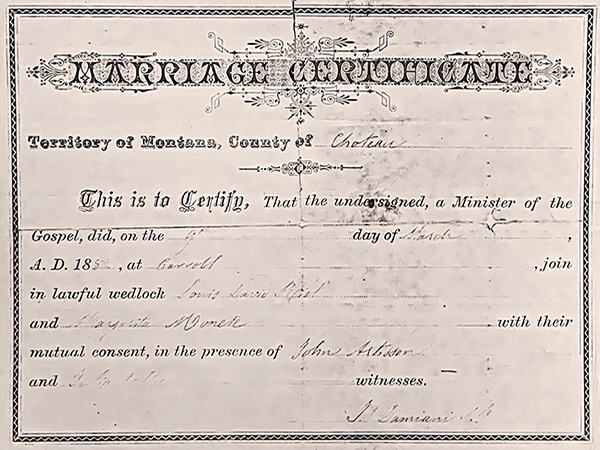 MARRIAGE CERTIFICATE
Territory of Montana, County of Choteau
This is to Certify, That the undersigned, a Minister of the
Gospel, did, on the 9th day of March,
A. D. 188, at Carroll, join
in lawful wedlock Louis David Riel
and Margarita Monet with their
mutual consent, in the presence of John
and witnesses.
Damiani S.J.